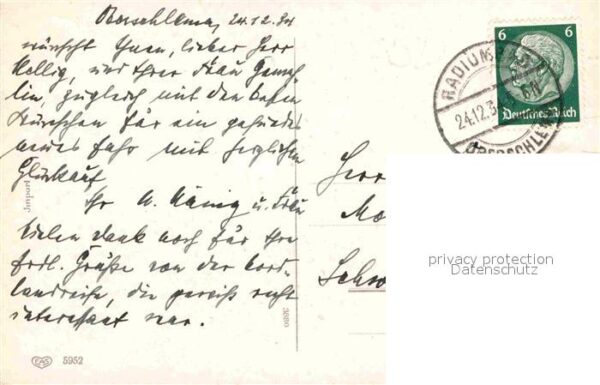 Oberschlema, 24.12.34
wünscht Ihnen, lieber Herr
Kollig, und Ihrer Frau Gemah-
lin, zugleich mit den besten
Wünschen für ein gesundes
neues Jahr mit herzlichem
Glückauf
Ihr A. König u. Frau
Vielen Dank noch für Ihre
frdl. Grüße von der Nord-
landreise, die gewiß recht
interessant war.
Import
3280
EAS 5952
6 6
Deutsches Reich
RADIUM
24.12.3
OBERSCHLE
Herr
Mo
Schw
privacy protection
Datenschutz